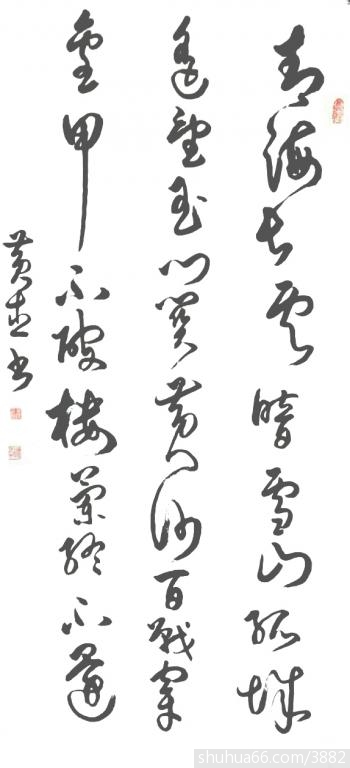 青海長雲暗雪山孤城
遥望玉門關黄沙百戰穿
金甲不破樓蘭終不還
黄 书
shuhua66.com/3882